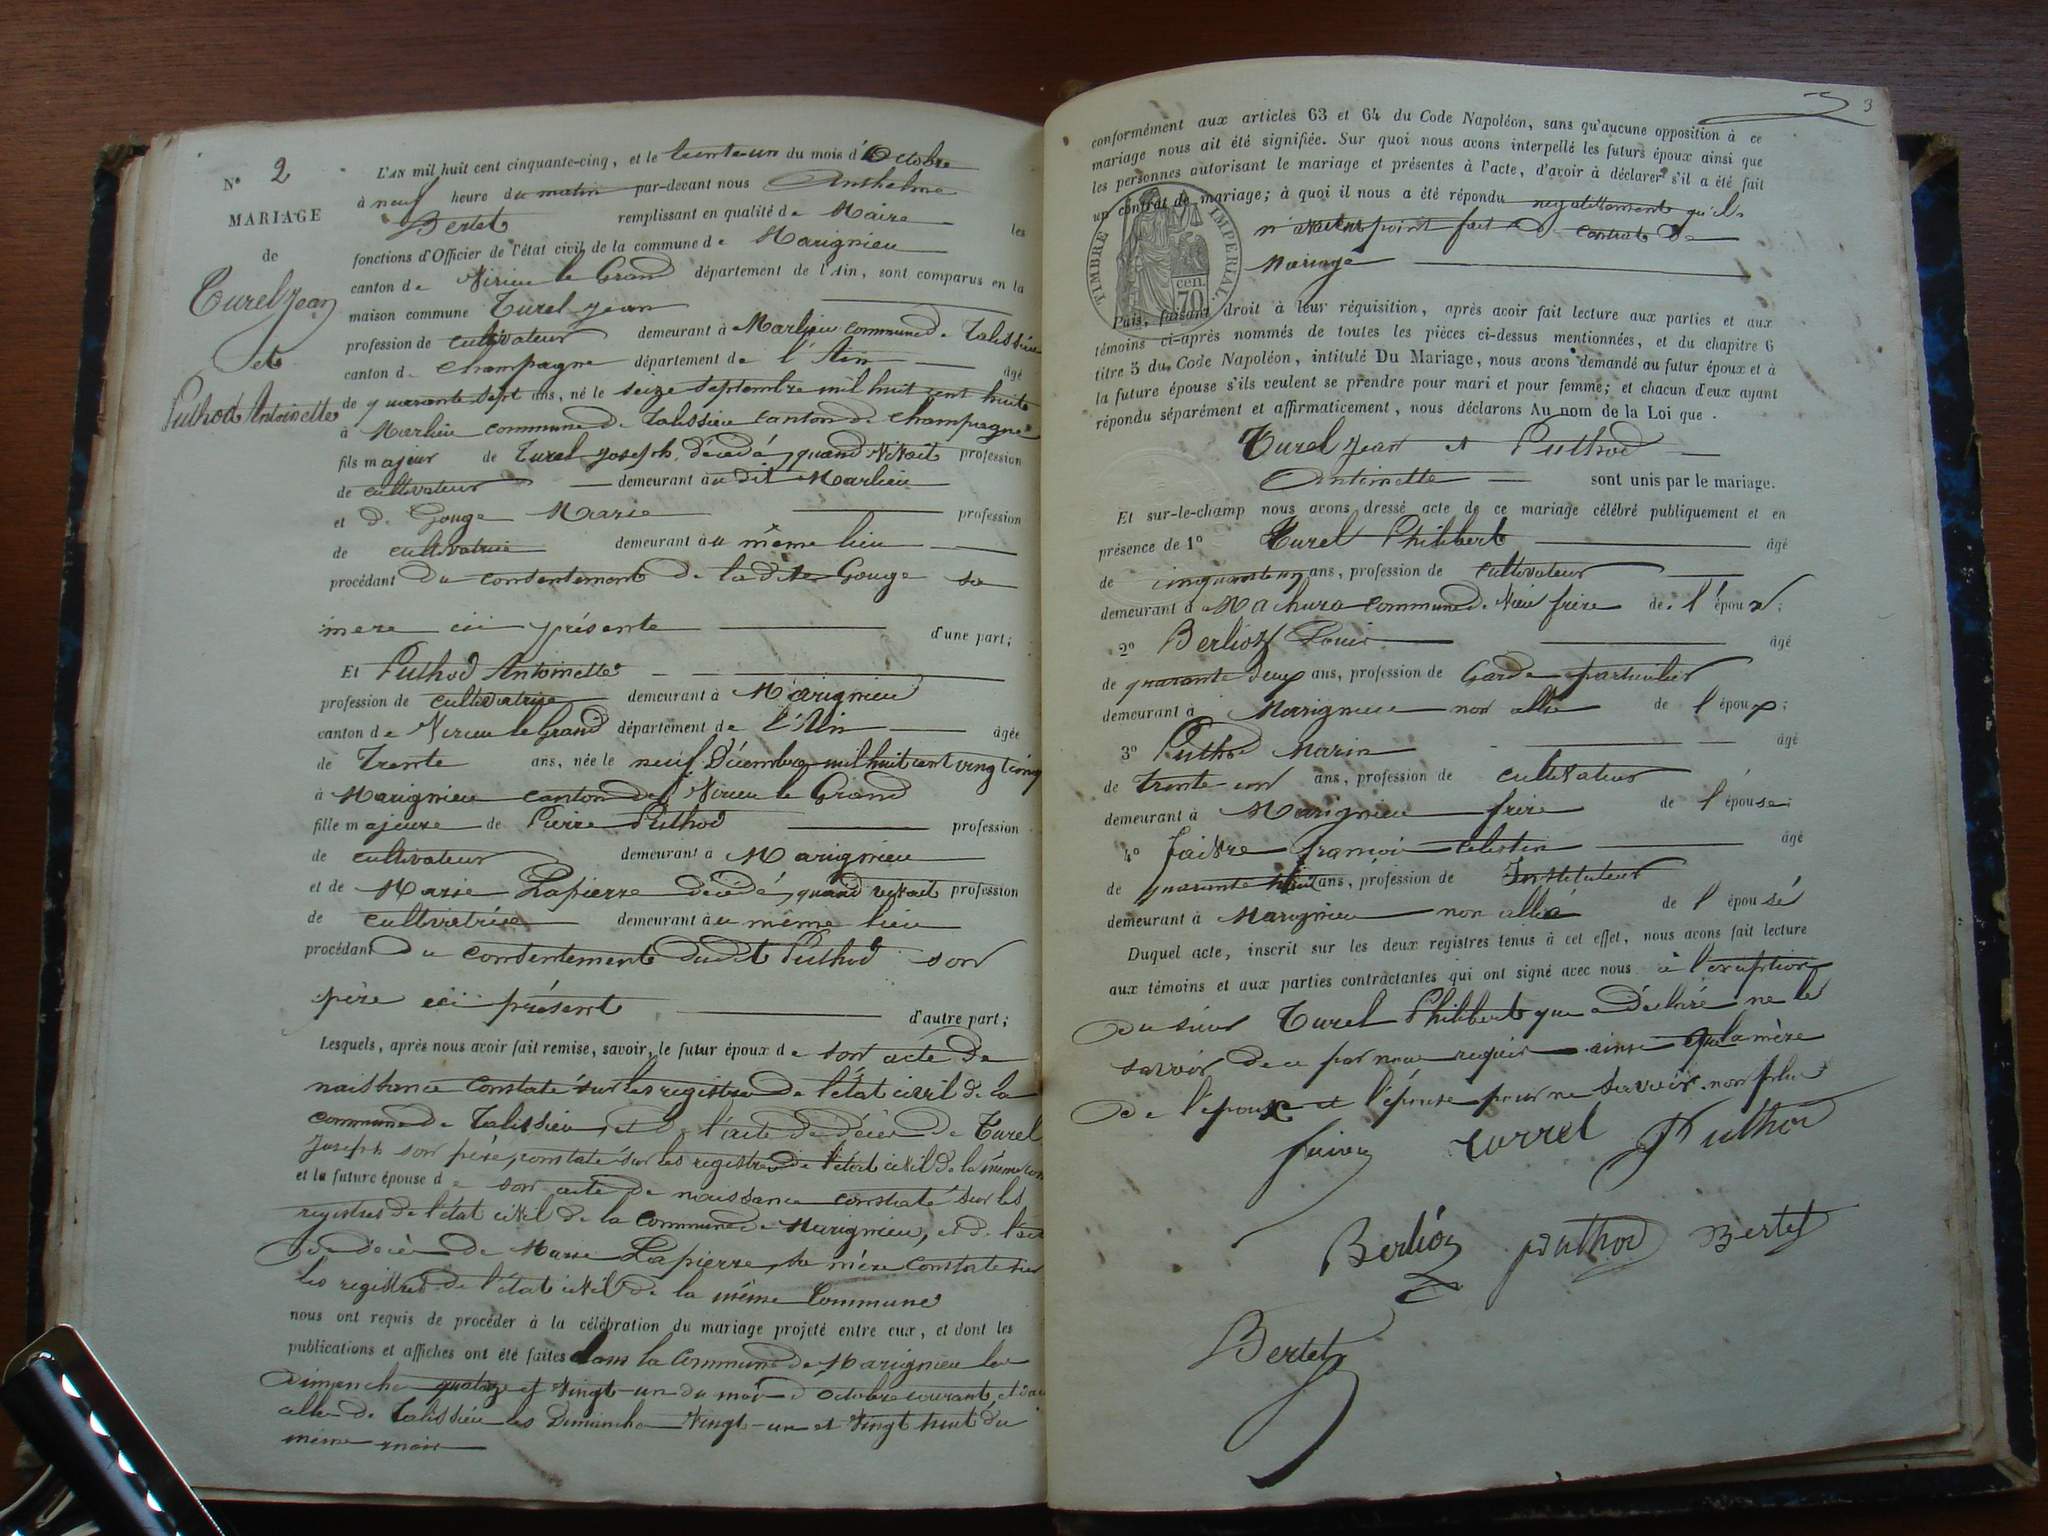 N° 2
MARIAGE
de
Turel Jean
et
Puthod Antoinette
L'AN mil huit cent cinquante-cinq, et le trente-un du mois d'Octobre
à neuf heure du matin par-devant nous Anthelme
Bertet remplissant en qualité de Maire les
fonctions d'Officier de l'état civil de la commune de Marignieu
canton de Virieu le Grand département de l'Ain, sont comparus en la
maison commune Turel Jean
profession de cultivateur demeurant à Marlieu commune de Talissieu
canton de Champagne département de l'Ain âgé
de quarante sept ans, né le seize septembre mil huit cent huit
à Marlieu commune de Talissieu canton de Champagne
fils majeur de Turel Joseph, décédé, quand vivait profession
de cultivateur demeurant au dit Marlieu
et de Gouge Marie profession
de cultivatrice demeurant au même lieu
procédant du consentement de la dite Gouge sa
mere ici présente d'une part;
Et Puthod Antoinette
profession de cultivatrice demeurant à Marignieu
canton de Virieu le Grand département de l'Ain âgée
de Trente ans, née le neuf Décembre mil huit cent vingt cinq
à Marignieu canton de Virieu le Grand
fille majeure de Pierre Puthod profession
de cultivateur demeurant à Marignieu
et de Marie Lapierre décédé, quand vivait profession
de cultivatrice demeurant au même lieu
procédant du consentement dudit Puthod son
père ici présent d'autre part;
Lesquels, après nous avoir fait remise, savoir, le futur époux de son acte de
naissance constaté sur les registres de l'état civil de la
commune de Talissieu, et de l'acte de décès de Turel
Joseph son père, constaté sur les registres de l'état civil de la même com
et la future épouse de son acte de naissance constaté sur les
registres de l'état civil de la commune de Marignieu, et de l'acte
de décès de Marie Lapierre, sa mère constaté sur
les registres de l'état civil de la même Commune
nous ont requis de procéder à la célébration du mariage projeté entre eux, et dont les
publications et affiches ont été faites dans la Commune de Marignieu les
Dimanche quatorze et vingt-un du mois d'octobre courant, et dans
celle de Talissieu les Dimanche vingt-un et vingt huit du
même mois
3
conformément aux articles 63 et 64 du Code Napoléon, sans qu'aucune opposition à ce
mariage nous ait été signifiée. Sur quoi nous avons interpellé les futurs époux ainsi que
les personnes autorisant le mariage et présentes à l'acte, d'avoir à déclarer s'il a été fait
un contrat de mariage; à quoi il nous a été répondu negativement qu'ils
n'avaient point fait de contrat de
Mariage
TIMBRE IMPÉRIAL.
cen.
70
Puis, faisant droit à leur réquisition, après avoir fait lecture aux parties et aux
témoins ci-après nommés de toutes les pièces ci-dessus mentionnées, et du chapitre 6
titre 5 du Code Napoléon, intitulé Du Mariage, nous avons demandé au futur époux et à
la future épouse s'ils veulent se prendre pour mari et pour femme; et chacun d'eux ayant
répondu séparément et affirmaticement, nous déclarons Au nom de la Loi que
Turel Jean et Puthod
Antoinette sont unis par le mariage.
Et sur-le-champ nous avons dressé acte de ce mariage célébré publiquement et en
présence de 1° Turel Philibert âgé
de cinquante un ans, profession de cultivateur
demeurant à Machura commune de frère de l'époux;
2° Berlioz Louis âgé
de quarante deux ans, profession de Garde particulier
demeurant à Marignieu non allié de l'époux;
3° Puthod Marin âgé
de trente-un ans, profession de cultivateur
demeurant à Marignieu frère de l'épouse;
4° Jaivre françois célestin âgé
de quarante huit ans, profession de Instituteur
demeurant à Marignieu non allié de l'épousé
Duquel acte, inscrit sur les deux registres tenus à cet effet, nous avons fait lecture
aux témoins et aux parties contractantes qui ont signé avec nous à l'exception
du sieur Turel Philibert qui a déclaré ne le
savoir de ce par nous requis ainsi que la mère
de l'époux et l'épouse pour ne savoir non plus
turrel Puthod
Berlioz puthod Bertet
Bertet